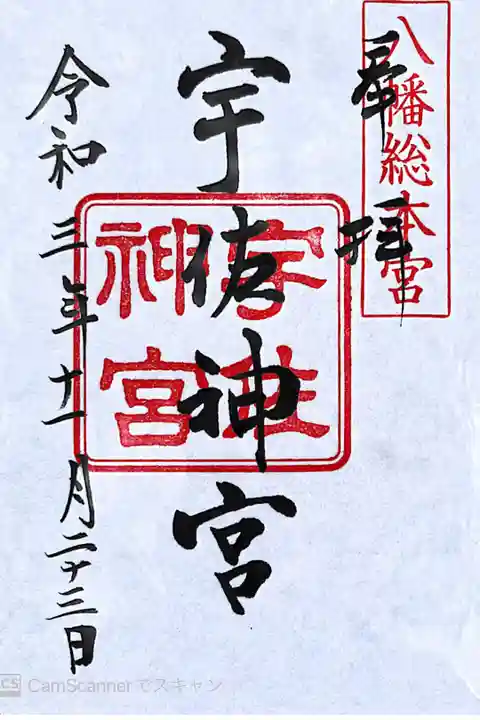 八幡総本宮
奉拝
宇佐神宮
宇佐神宮
令和三年十一月二十三日
CS CamScannerでスキャン